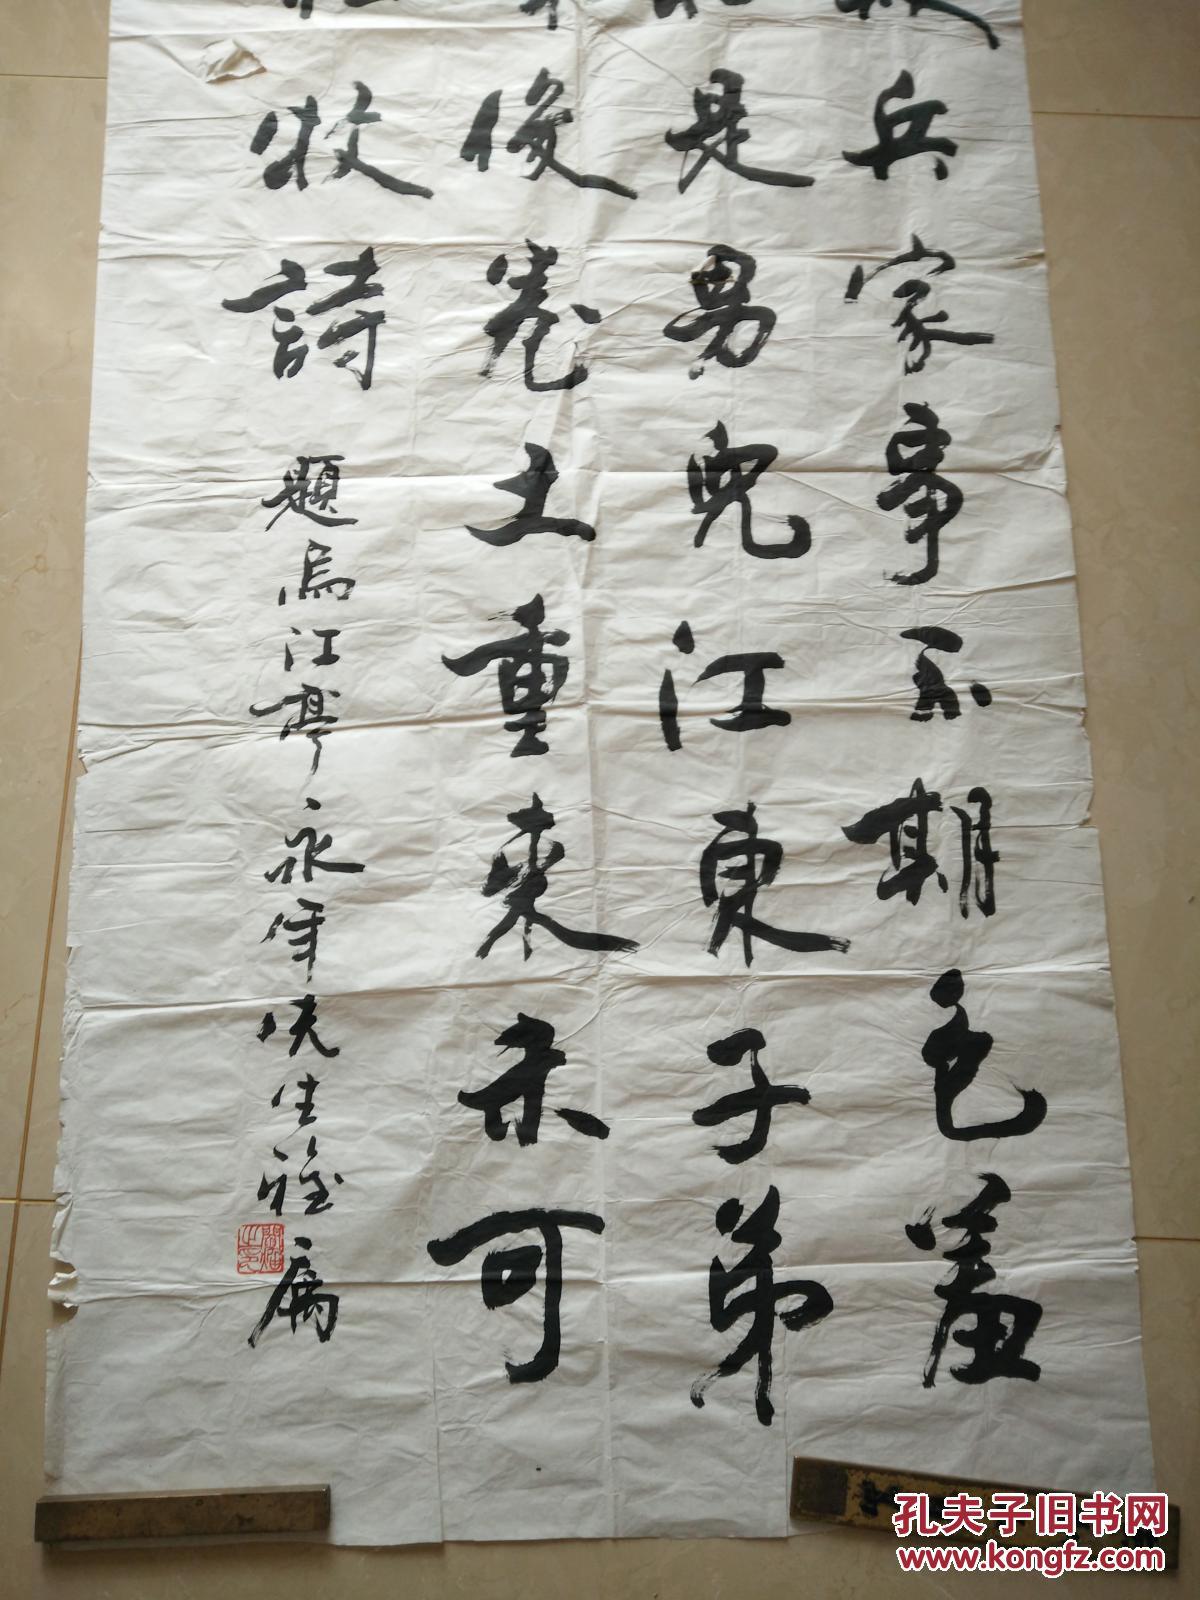 兵家事不期包羞
是男兒江東子弟
俊卷土重來未可
牧詩 題烏江亭 永年先生雅属
孔夫子旧书网
www.kongfz.com